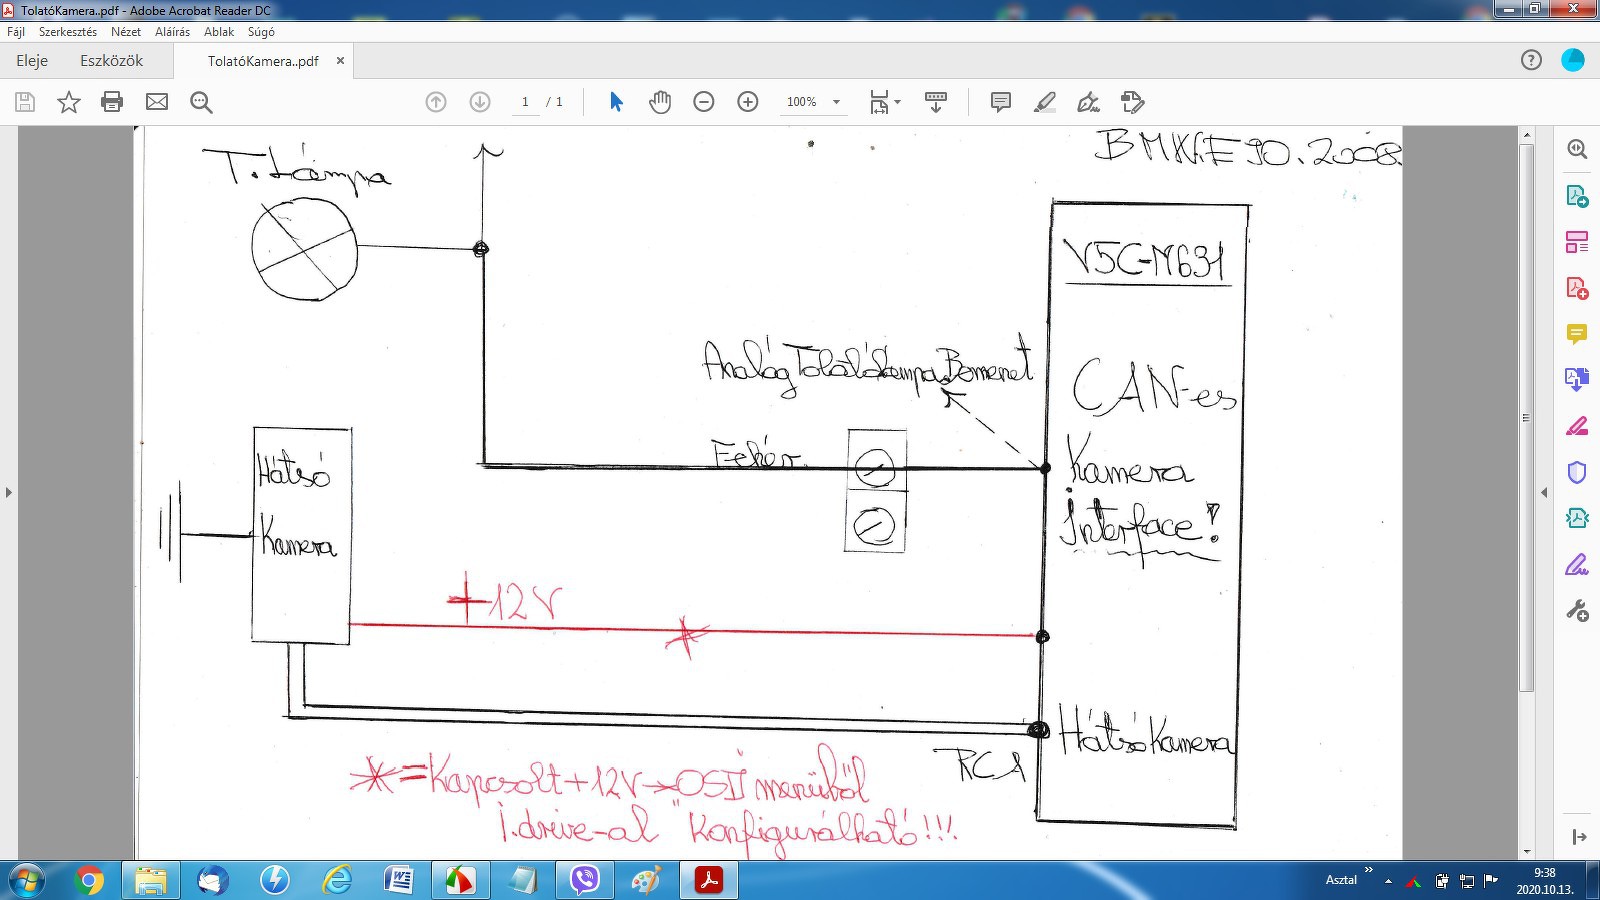 TolatóKamera..pdf - Adobe Acrobat Reader DC
Fájl Szerkesztés Nézet Aláírás Ablak Súgó
Eleje Eszközök TolatóKamera..pdf ×
1 / 1 100%
T.Lámpa
E90.2008.
V5C-M631
Analóg TolatóLámpa Bemenet
CAN-es
Fehér.
Kamera
Interface!
Hátsó
Kamera
+12V
Hátsó Kamera
RCA
*=Kapcsolt+12V→OSD menüből
I.drive-al "Konfigurálható!!!
Asztal
9:38
2020.10.13.